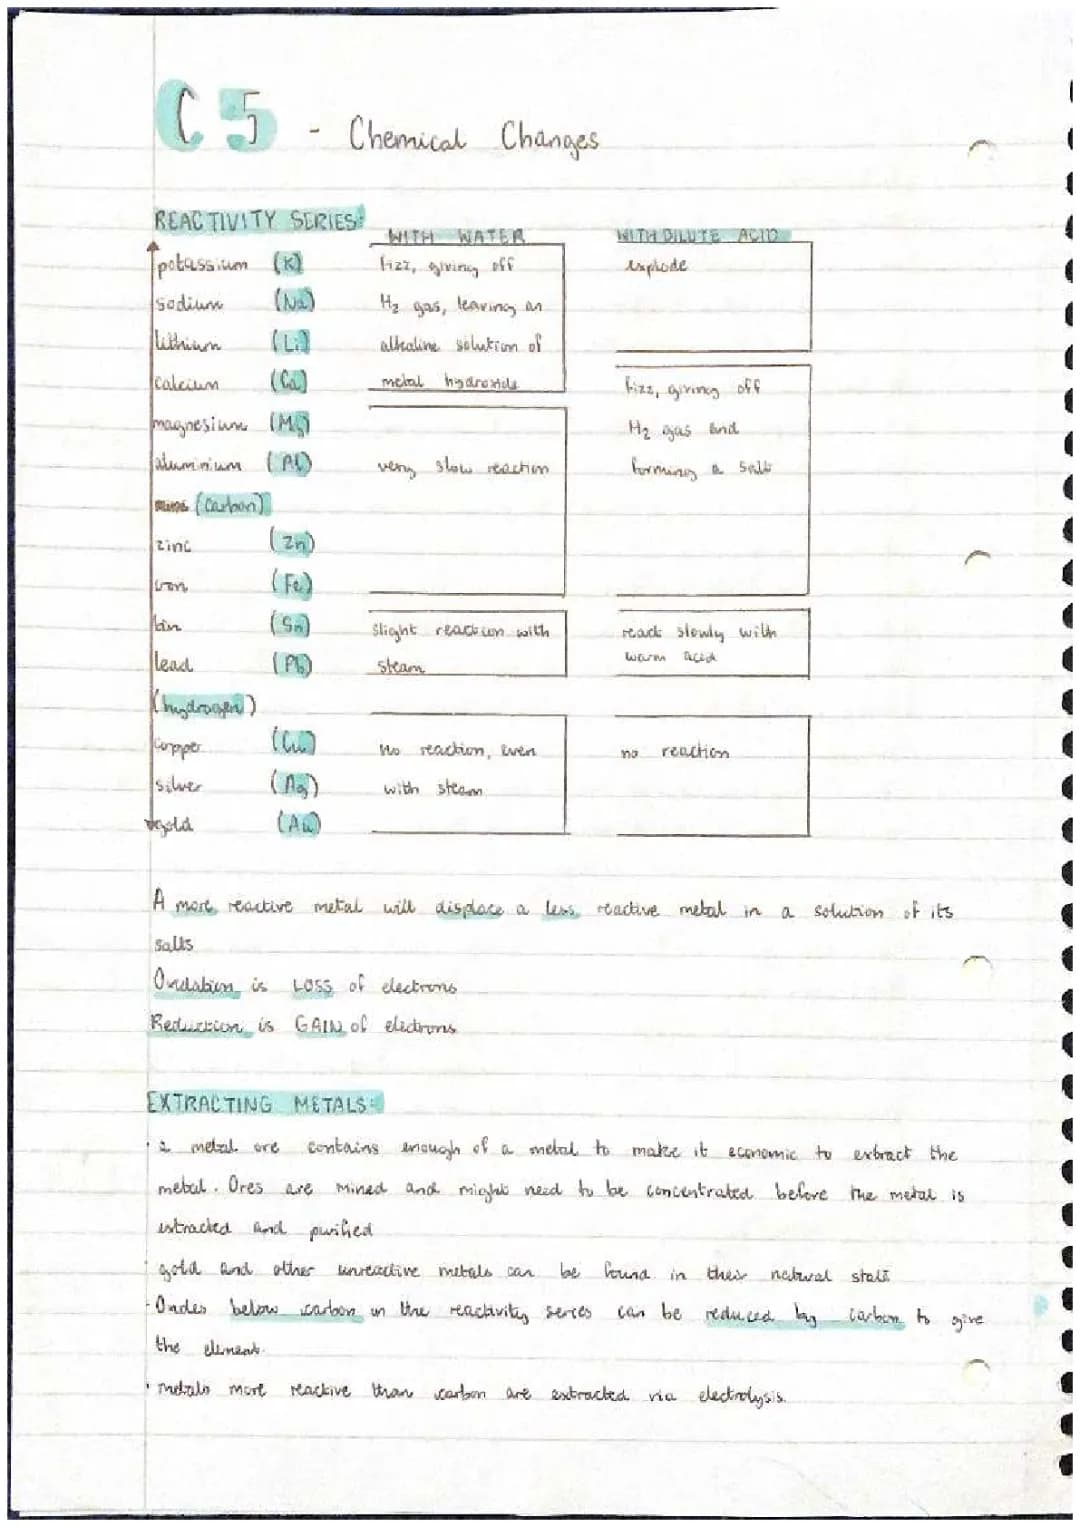 C5 - Chemical Changes
REACTIVITY SERIES:
WITH WATER
WITH DILUTE ACID
potassium (K)
fizz, giving off
explode
sodium (Na)
H₂ gas, leaving an
lithium (Li)
alkaline solution of
calcium (Ca)
metal hydroxide
fizz, giving off
magnesium (Mg)
H₂ gas and
aluminium (Al)
very slow reaction
forming a salt
(carbon)
zinc (Zn)
iron (Fe)
tin (Sn)
slight reaction with
react slowly with
lead (Pb)
steam
warm acid
(hydrogen)
copper (Cu)
no reaction, even
no reaction
silver (Ag)
with steam
gold (Au)
A more reactive metal will displace a less reactive metal in a solution of its
salts
Oxidation is LOSS of electrons
Reduction is GAIN of electrons
EXTRACTING METALS:
· a metal ore contains enough of a metal to make it economic to extract the
metal. Ores are mined and might need to be concentrated before the metal is
extracted and purified
· gold and other unreactive metals can be found in their natural state
· Oxides below carbon in the reactivity series can be reduced by carbon to give
the element.
· metals more reactive than carbon are extracted via electrolysis.